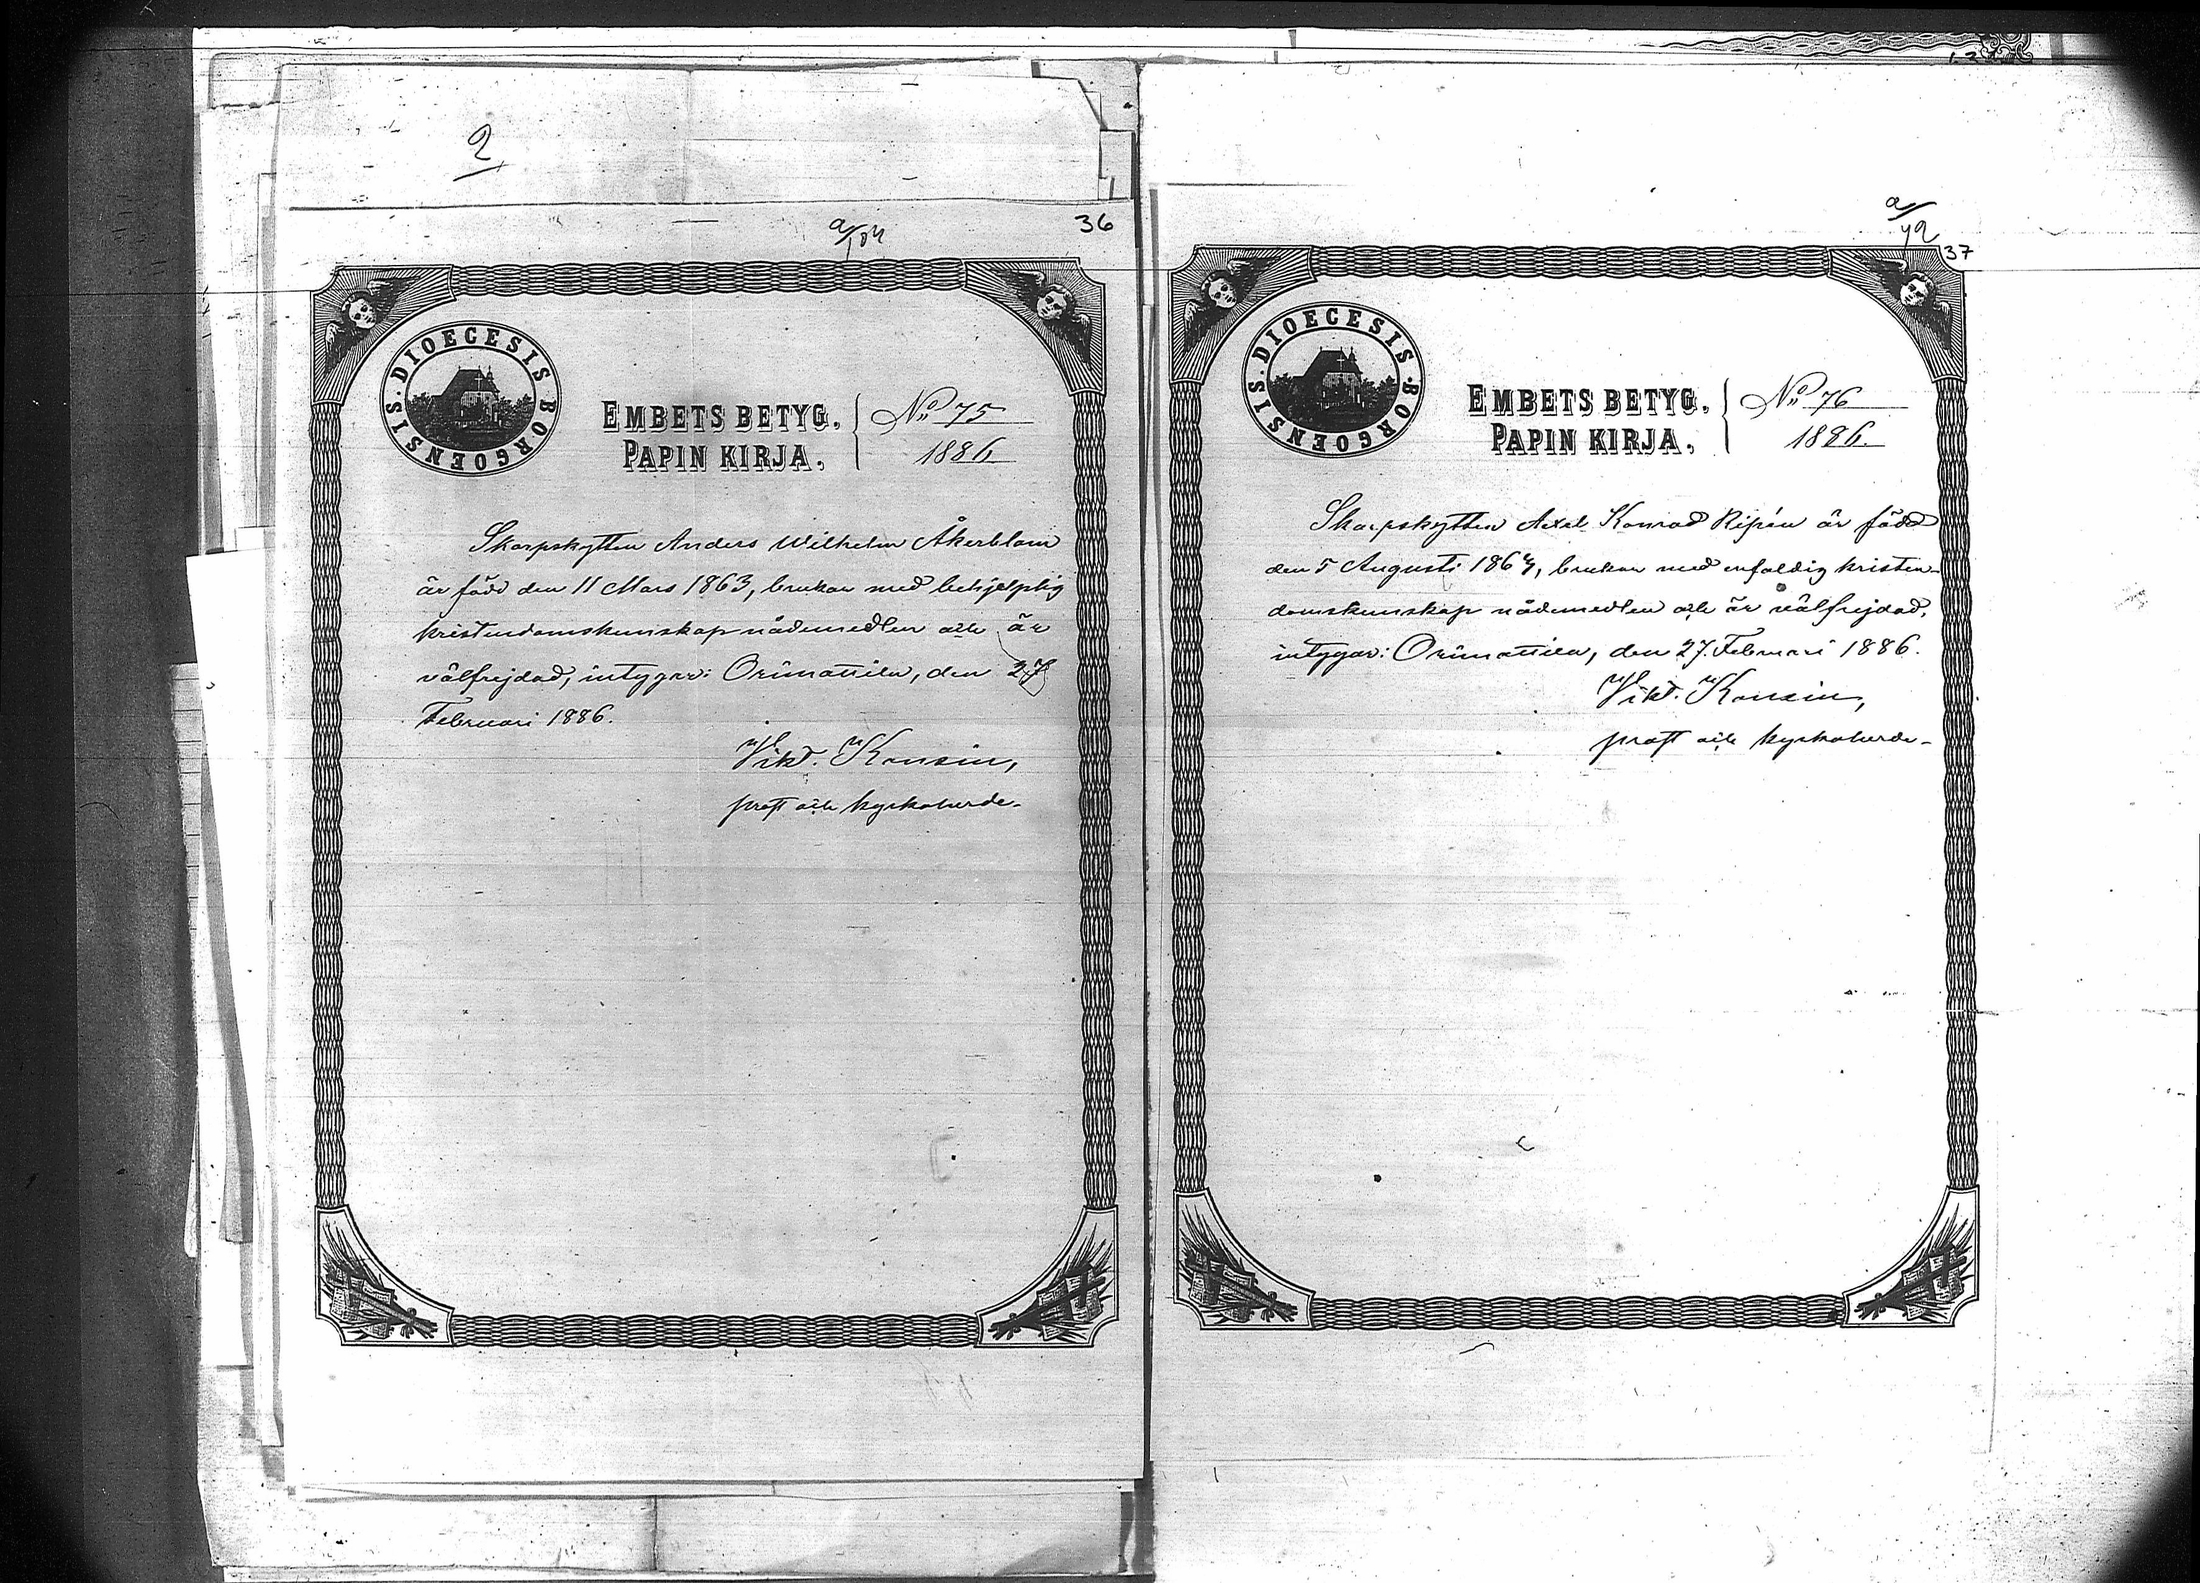 2
a/104
36
DIOECESIS BORGOENSIS.
EMBETS BETYG.
PAPIN KIRJA.
No 75
1886
Skarpskytten Anders Wilhelm Åkerblom
är född den 11 Mars 1863, brukar med behjelplig
kristendomskunskap nådemedlen och är
välfrejdad, intygar: Orimattila, den 27
Februari 1886.
Vikt. Konsin,
prost och kyrkoherde.
a/42
37
DIOECESIS BORGOENSIS.
EMBETS BETYG.
PAPIN KIRJA.
No 76
1886.
Skarpskytten Axel Konrad Ripén är född
den 5 Augusti 1864, brukar med enfaldig kristen-
domskunskap nådemedlen och är välfrejdad,
intygar: Orimattila, den 27. Februari 1886.
Vikt. Konsin,
prost och kyrkoherde.